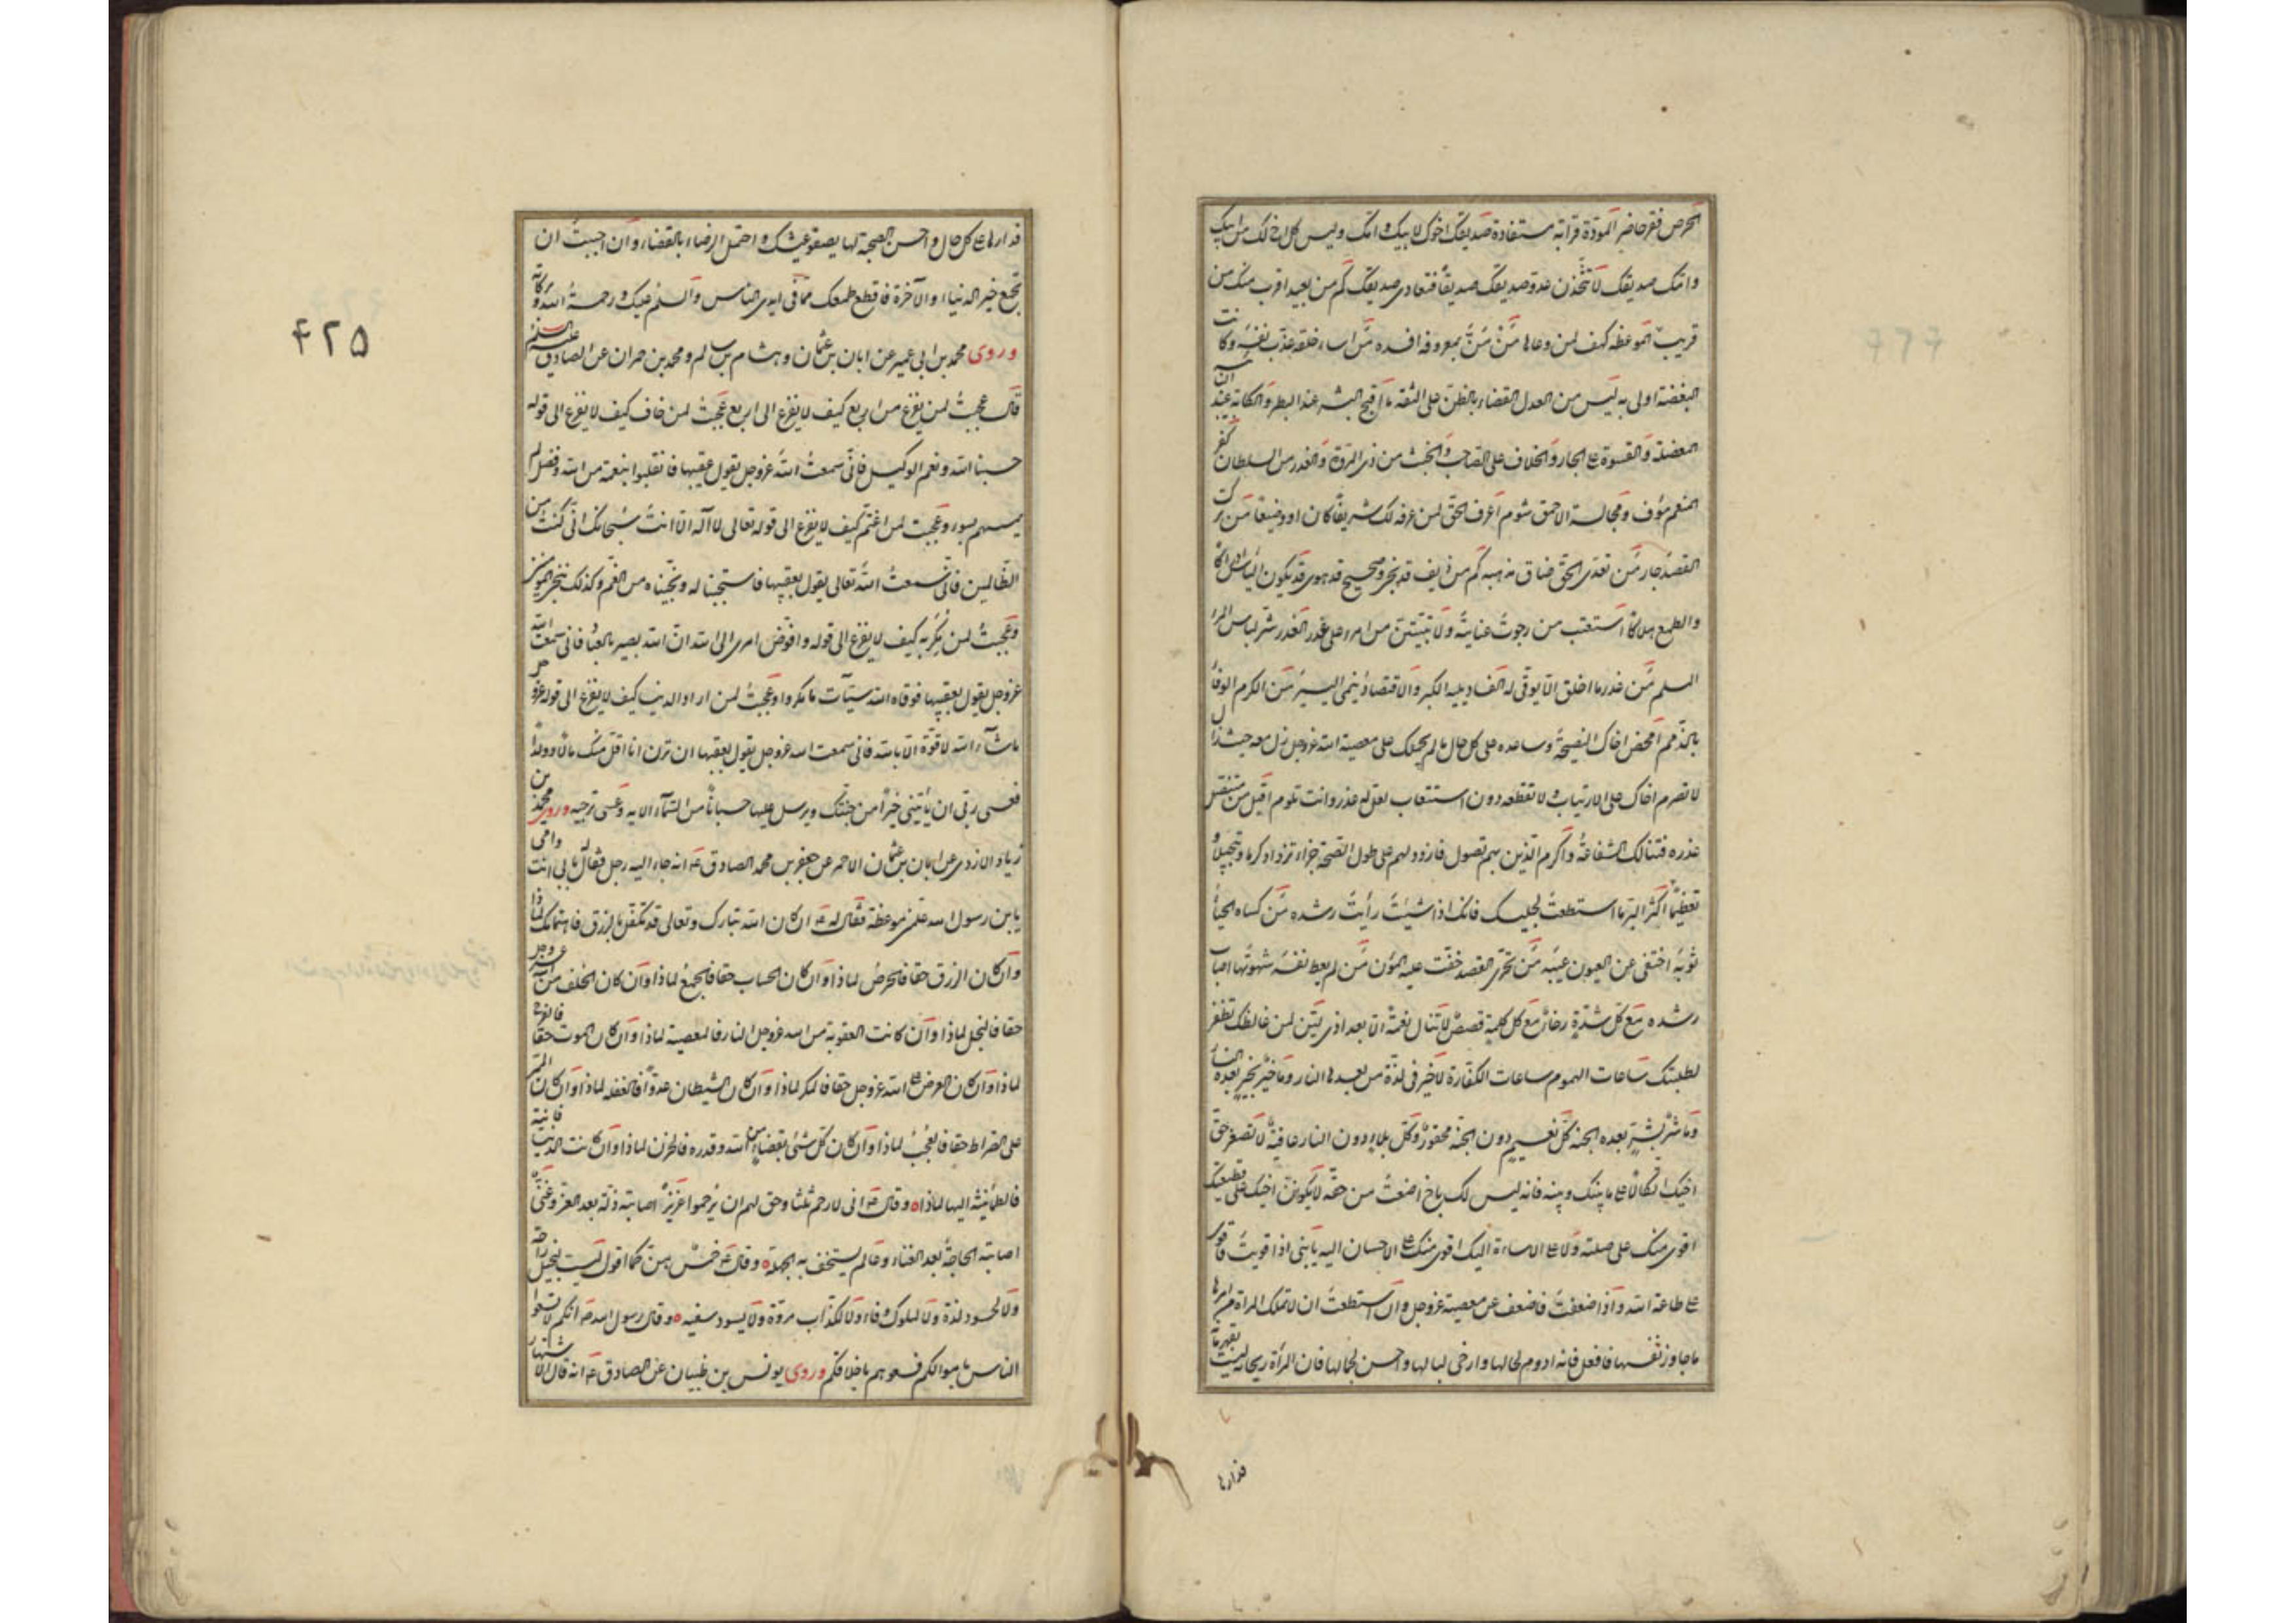 الحرص فقر حاضر المودّة قرابة مستفادة صديقك اخوك لابيك وامّك وليس كل اخ لك من ابيك
وامّك صديقك لا تتّخذن عدوّ صديقك صديقاً فتعادى صديقك كم من بعيد اقرب منك من
قريب الموعظة كهف لمن وعاها مَنْ مَنَّ بمعروفه افسده مَن اساء خلقه عذّب نفسه وكانت
البغضة اولى به ليس من العدل القضاء بالظن على الثقة ما اقبح الاشر عند البطر والكآبة عند
المعضلة والقسوة على الجار والخلاف على الصاحب والخبث من ذى المروّة والغدر من السلطان كفر
النعم موُف ومجالسة الاحمق شوم اعرف الحق لمن عرفه لك شريفاً كان او وضيعاً من ترك
القصد جار من تعدّى الحق ضاق مذهبه كم من دنف قد نجى وصحيح قد هوى قد يكون اليأس ادراكا
والطمع هلاكا استعتب من رجوت عتابه ولا تبيتنّ من امرء على غدر الغدر شر لباس المرء
المسلم من غدر ما اخلق الّا يوفى له الفساد يبيد الكثير والاقتصاد ينمى اليسير من الكرم الوفاء
بالذمم امحض اخاك النصيحة وساعده على كل حال ما لم يحملك على معصية الله عزوجل زل معه حيث زال
لا تصرم اخاك على ارتياب ولا تقطعه دون استعتاب لعل له عذر وانت تلوم اقبل من متنصل
عذره فتنالك الشفاعة واكرم الذين بهم تصول فازدد لهم على طول الصحبة جزاء تزداد كرما وتبجيلا و
تعظيما اكثر البر ما استطعت لجليسك فانك اذا شئت رأيت رشده من كساه الحياء
ثوبه اختفى عن العيون عيبه من تحرّى القصد خفت عليه المؤن من لم يعط نفسه شهوتها اصاب
رشده مع كل شدّة رخاءٌ مع كل كلمة غصص لا تنال نعمة الّا بعد اذى لِن لمن غالظك تظفر
لطلبتك ساعات الهموم ساعات الكفارة لا خير فى لذة من بعدها النار وما خيرٌ بخير بعده النار
وما شرٌ بشرّ بعده الجنة كل نعيم دون الجنة محقور وكل بلاء دون النار عافية لا تضيعن حق
اخيك اتكالاً على ما بينك وبينه فانه ليس لك باخ اضعت من حقّه لا يكونن اخيك على قطيعتك
اقوى منك على صلته ولا على الاساءة اليك اقوى منك على الاحسان اليه يا بنى اذا قويت فاقو
على طاعة الله واذا ضعفت فاضعف عن معصية عزوجل وان استطعت ان لا تملك المراة من امرها
ما جاوز نفسها فافعل فانه ادوم لجمالها وارخى لبالها واحسن لحالها فان المرأة ريحانة ليست بقهرمانة
فدارها
۴۲۵
فدارها على كل حال واحسن الصحبة لها يصفو عيشك واحتمل الرضاء بالقضاء وان احببت ان
تجمع خير الدنيا والآخرة فاقطع طمعك ممّا فى ايدى الناس والسلم عليك ورحمة الله وبركاته
وروى محمد بن ابى عمير عن ابان بن عثمان وهشام بن سالم ومحمد بن حمران عن الصادق عليه السلم
قال عجبت لمن يفزع من اربع كيف لا يفزع الى اربع عجبت لمن خاف كيف لا يفزع الى قوله
حسبنا الله ونعم الوكيل فانّى سمعت الله عزوجل يقول عقيبها فانقلبوا بنعمة من الله وفضل لم
يمسسهم سوء وعجبت لمن اغتمّ كيف لا يفزع الى قوله تعالى لا اله الّا انت سبحانك انّى كنت من
الظالمين فانى سمعت الله تعالى يقول بعقبها فاستجبنا له ونجّيناه من الغمّ وكذلك ننجى المؤمنين
وعجبت لمن مكر به كيف لا يفزع الى قوله وافوّض امرى الى الله انّ الله بصير بالعباد فانى سمعت الله
عزوجل يقول بعقبها فوقاه الله سيّآت ما مكروا وعجبت لمن اراد الدنيا كيف لا يفزع الى قوله عزوجل
ماشآء الله لا قوّة الّا بالله فانى سمعت الله عزوجل يقول بعقبها ان ترن انا اقلّ منك مالا وولدا
فعسى ربّى ان يؤتينى خيراً من جنتك ويرسل عليها حسبانا من السّماء الايه وعسى موجبه وروى محمد بن
زياد الازدى عن ابان بن عثمان الاحمر عن جعفر بن محمد الصادق ع انه جاء اليه رجل فقال بابى انت وامى
يا بن رسول الله علمنى موعظة فقال له ع ان كان الله تبارك وتعالى قد تكفّل بالرزق فاهتمامك لماذا
وان كان الرزق حقا فالحرص لماذا وان كان الحساب حقا فالجمع لماذا وان كان الخلف من الله عزوجل
حقا فالبخل لماذا وان كانت العقوبة من الله عزوجل النار فالمعصية لماذا وان كان الموت حقا فالفرح
لماذا وان كان العرض على الله عزوجل حقا فالمكر لماذا وان كان الشيطان عدوّا فالغفلة لماذا وان كان الممر
على الصراط حقا فالعجب لماذا وان كان كل شئ بقضاء من الله وقدره فالحزن لماذا وان كانت الدنيا فانية
فالطمأنينة اليها لماذا وقال ع انى لارحم ثلثا وحق لهم ان يرحموا عزيزٌ اصابته ذلّة بعد العز وغنىّ
اصابته الحاجة بعد الغناء وعالم يستخف به الجهلة وقال ع خمس هن كما اقول ليست لبخيل راحة
ولا لحسود لذة ولا لملوك وفاء ولا لكذّاب مروّة ولا يسود سفيه وقال رسول الله ص انكم لا تسعوا
الناس باموالكم فسعوهم باخلاقكم وروى يونس بن ظبيان عن الصادق ع انه قال الاشتهار